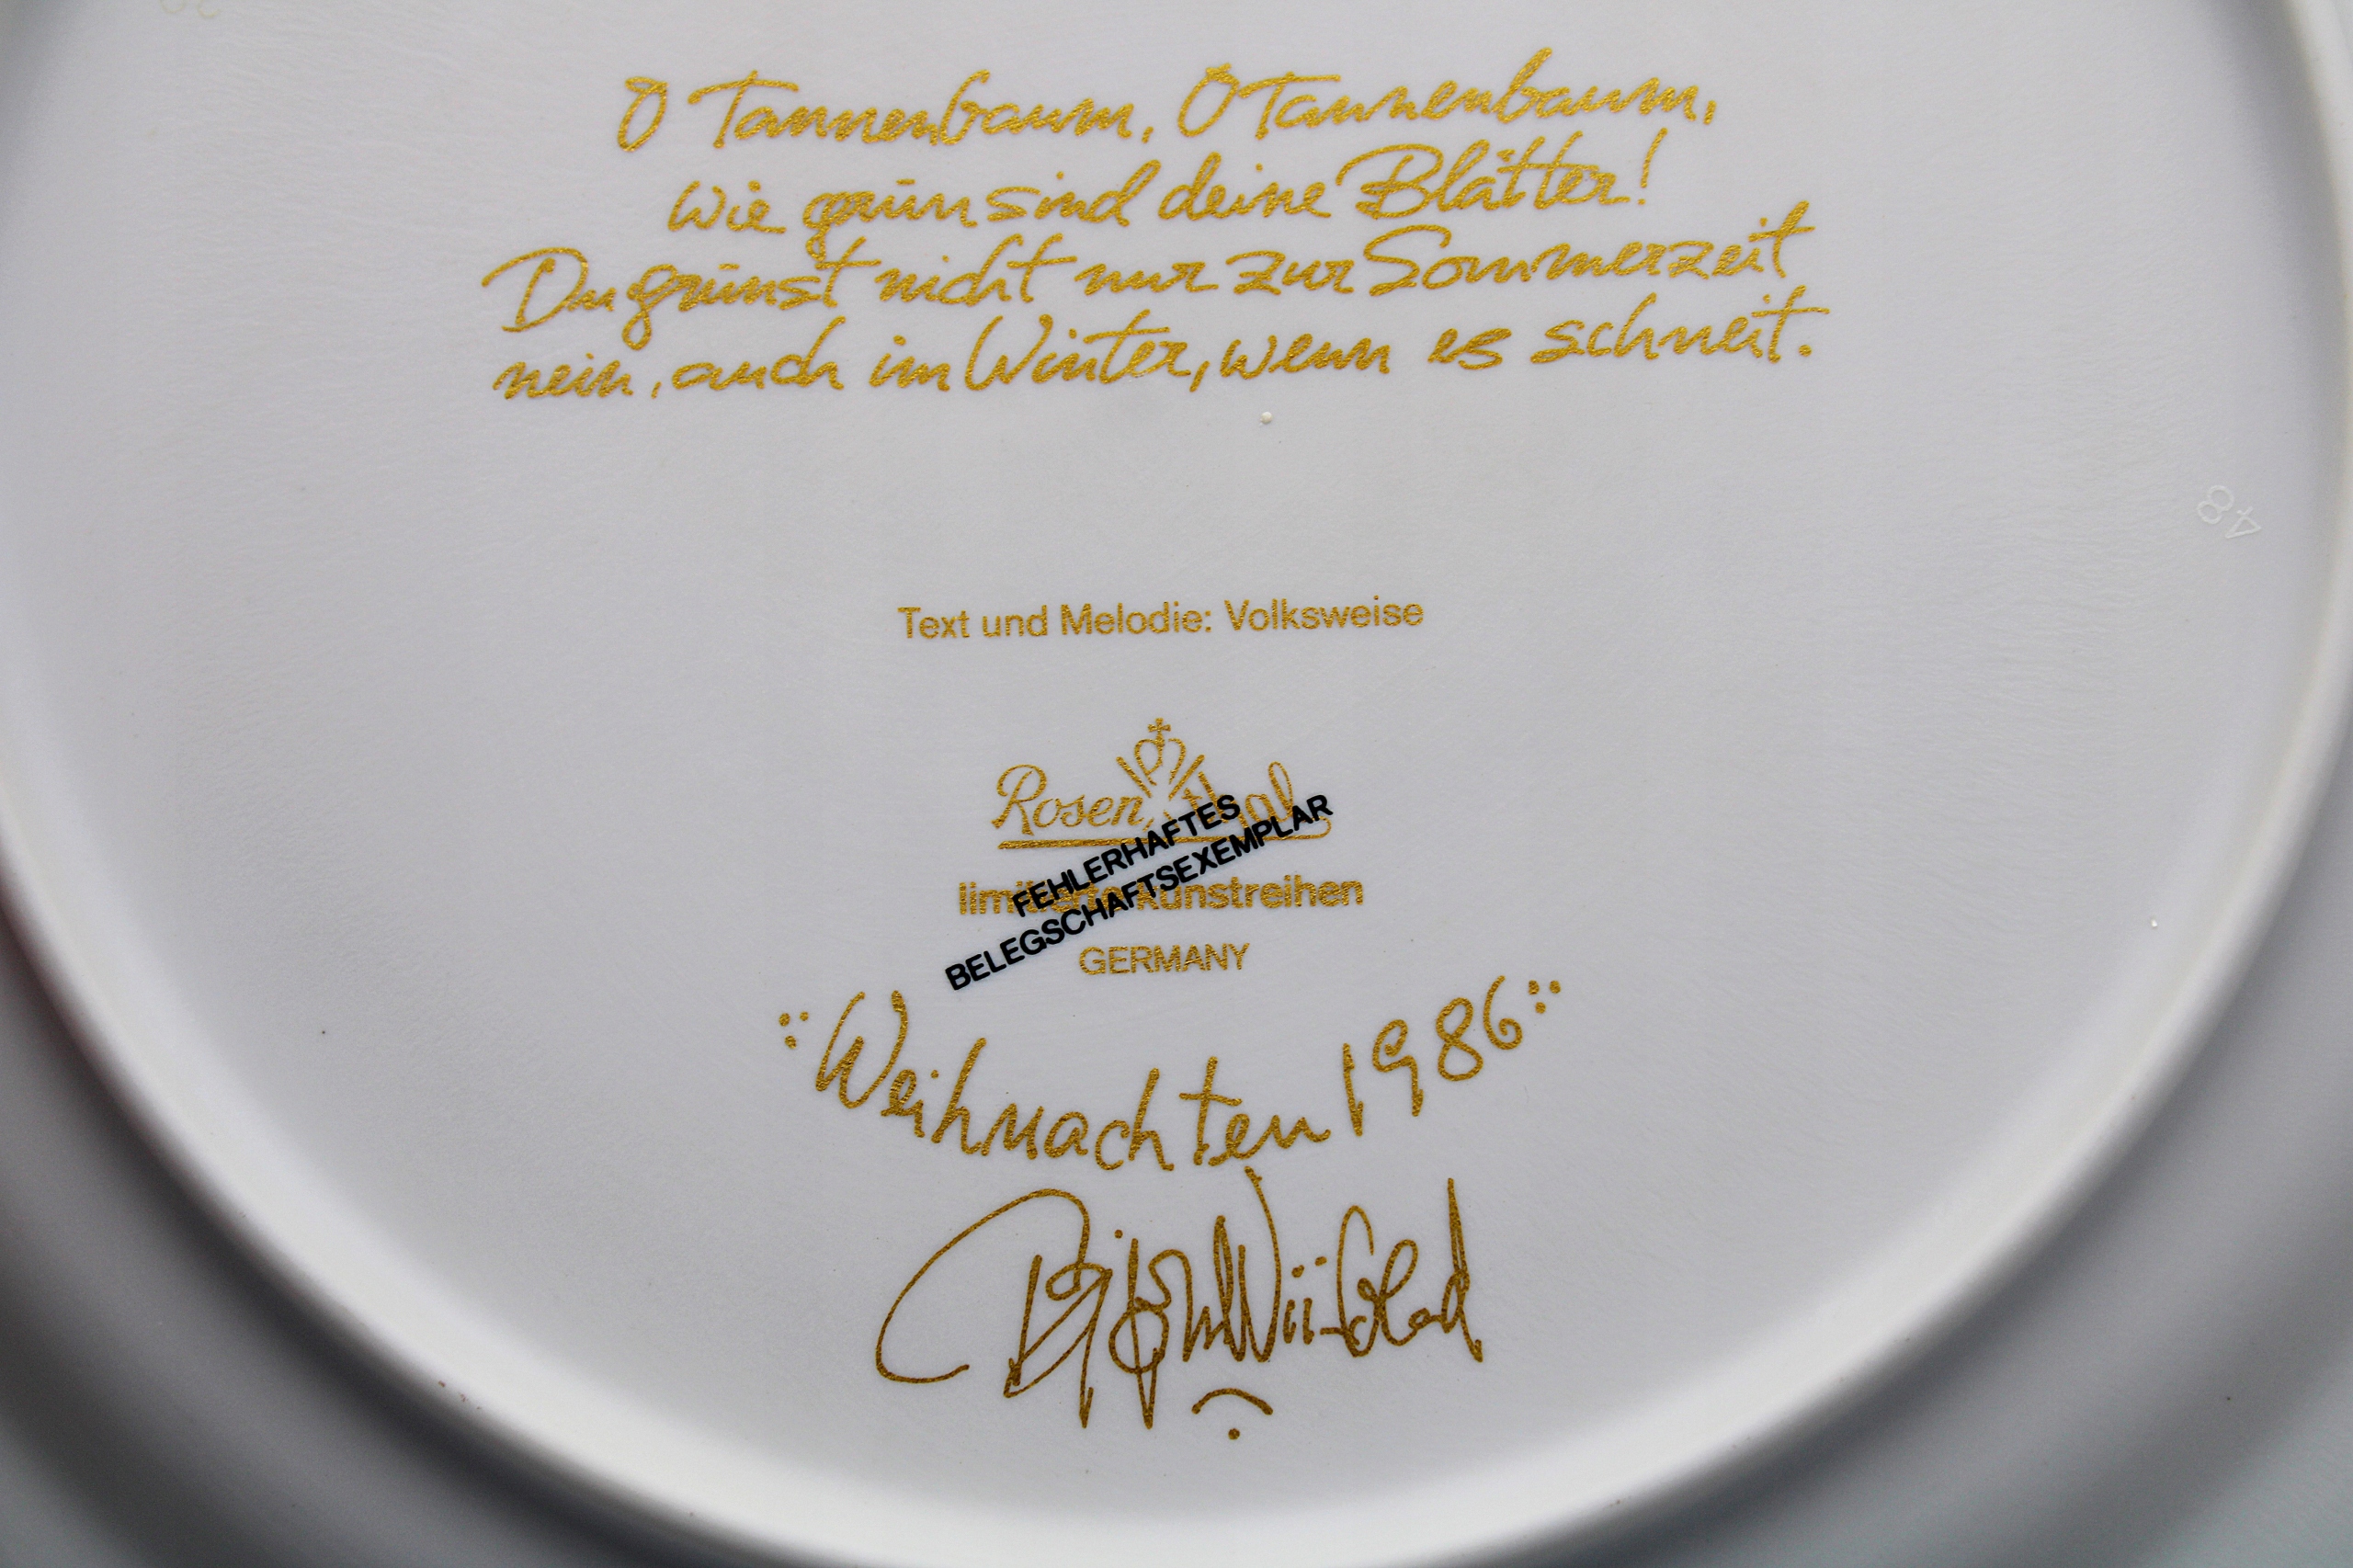 O Tannenbaum, O Tannenbaum,
wie grün sind deine Blätter!
Du grünst nicht nur zur Sommerzeit
nein, auch im Winter, wenn es schneit.
48
Text und Melodie: Volksweise
Rosenthal
FEHLERHAFTES
BELEGSCHAFTSEXEMPLAR
limitierte kunstreihen
GERMANY
Weihnachten 1986
Bjørn Wiinblad